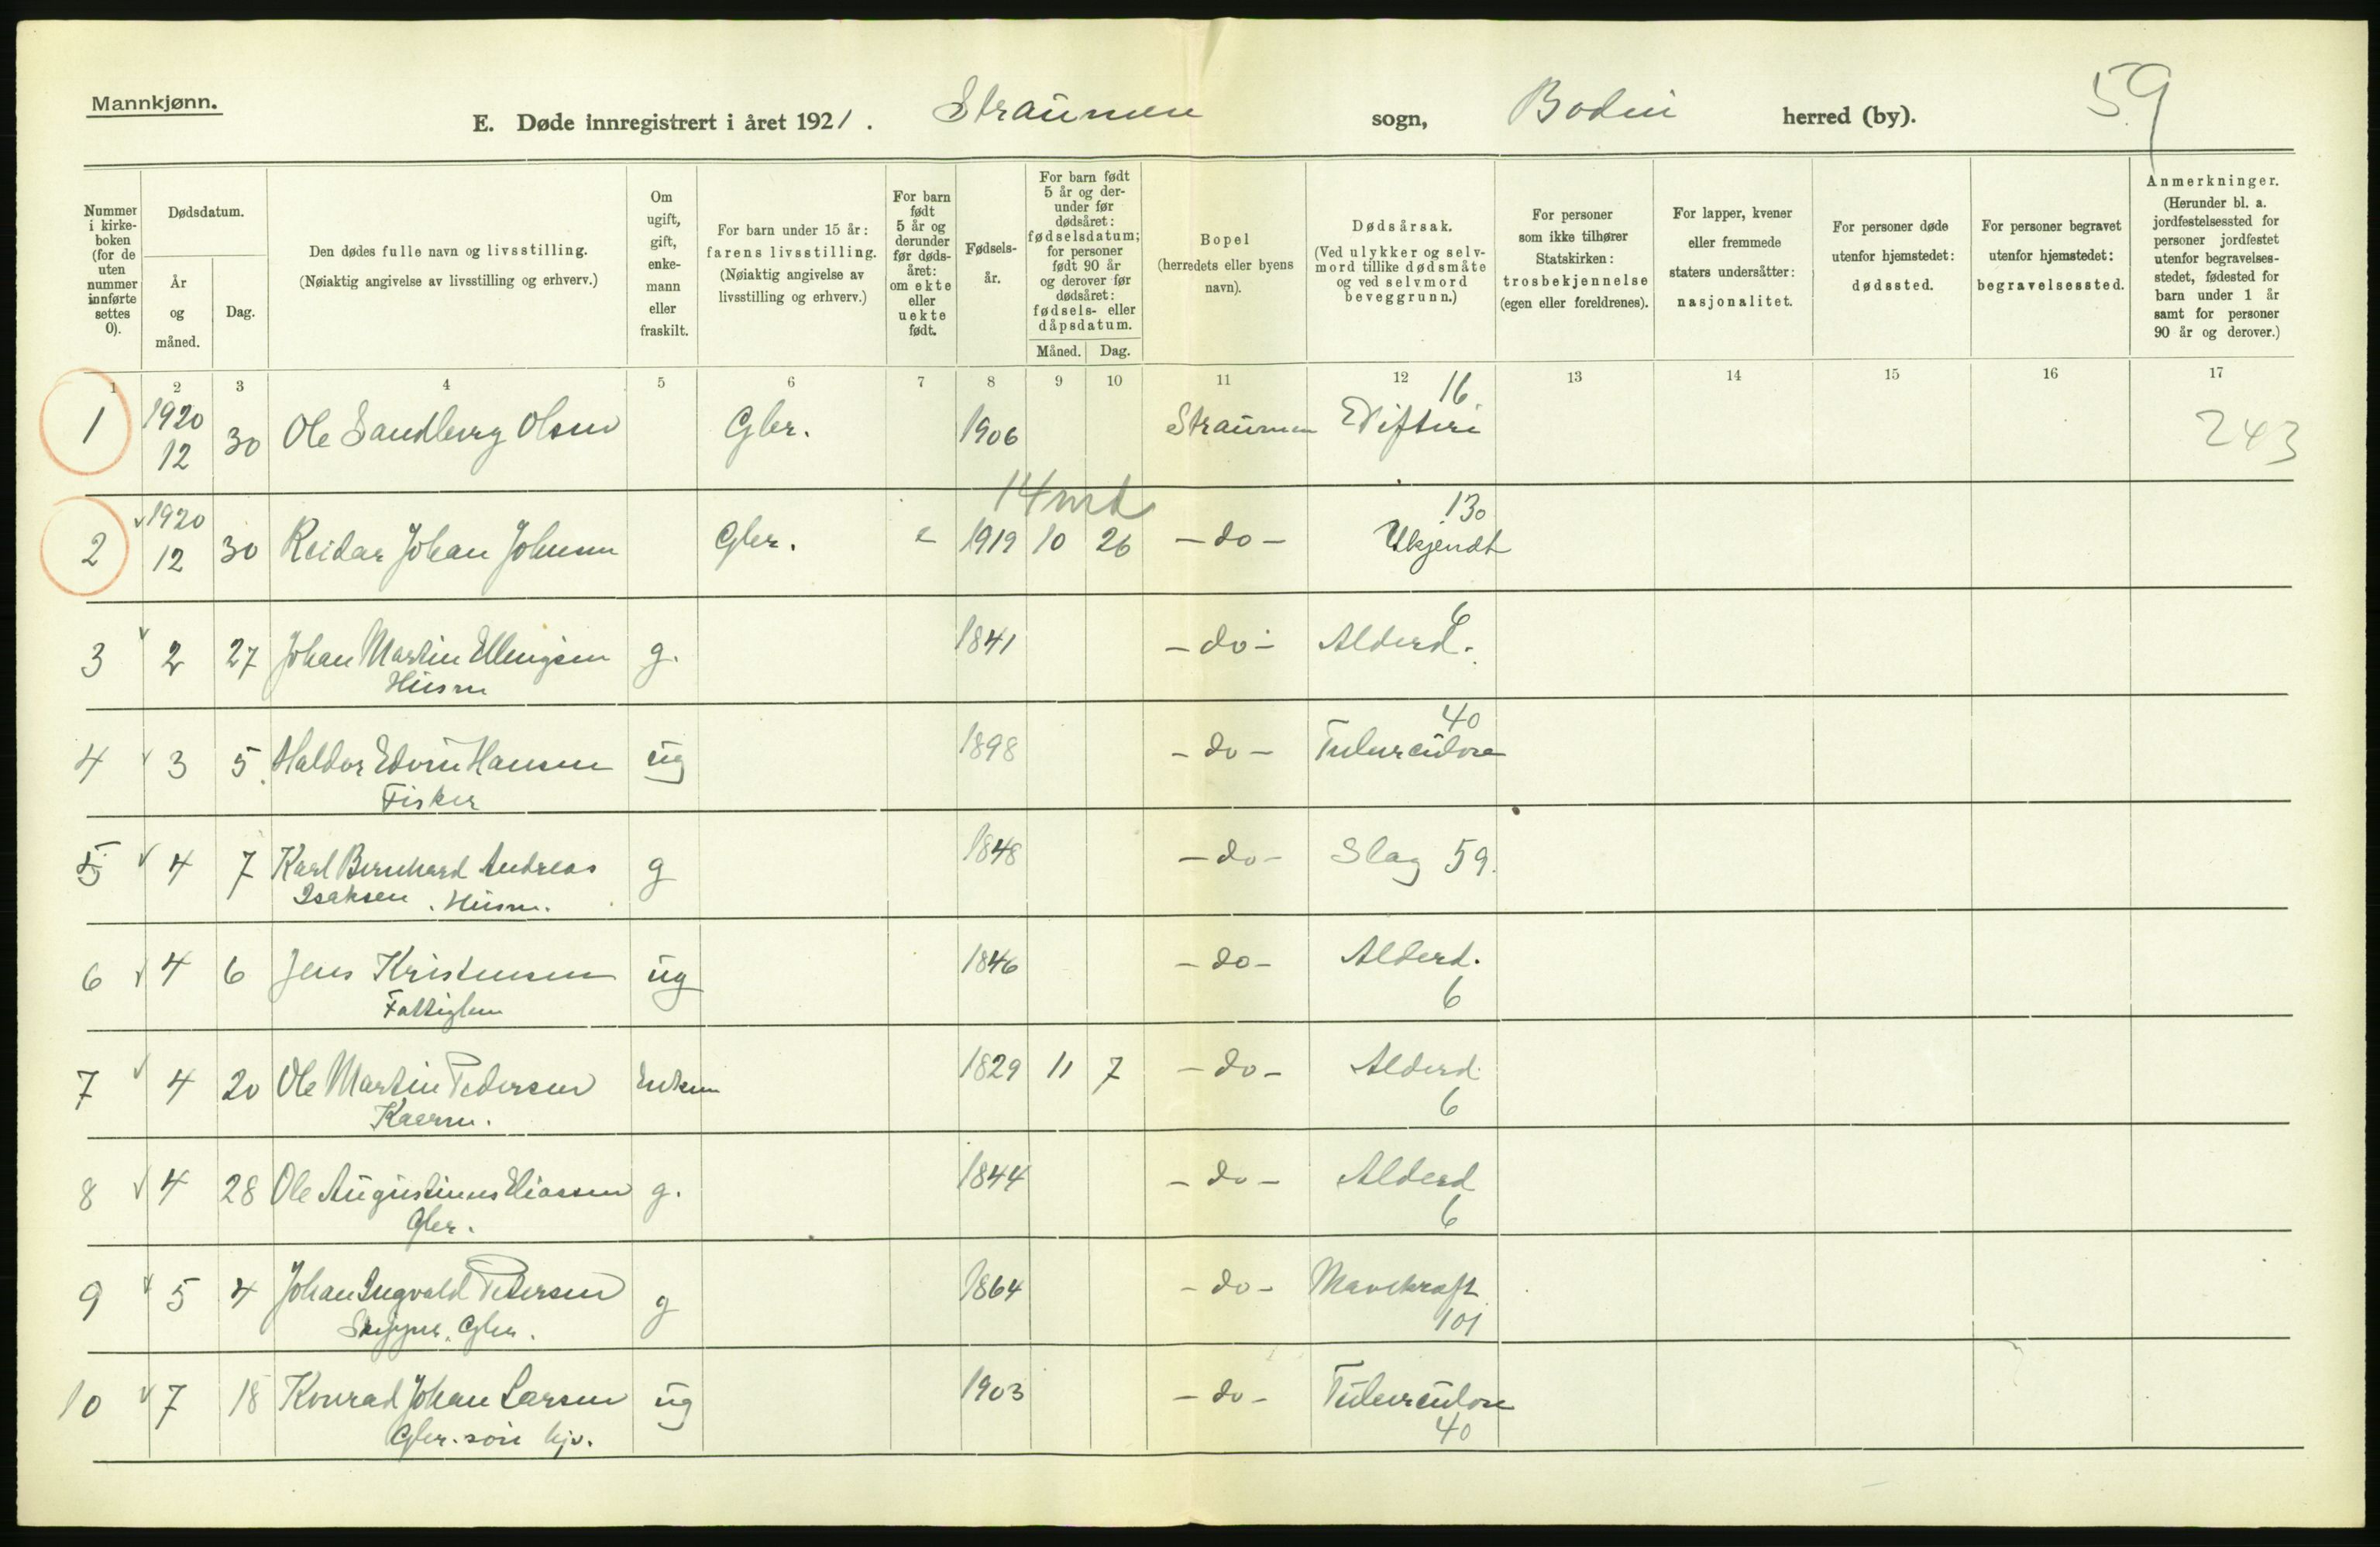 Mannkjønn.
E. Døde innregistrert i året 1921. Straumen sogn, Bodin herred (by). 59
Nummer i kirke-boken (for de uten nummer innførte settes 0).
Dødsdatum.
År og måned.
Dag.
Den dødes fulle navn og livsstilling.
(Nøiaktig angivelse av livsstilling og erhverv.)
Om ugift, gift, enke-mann eller fraskilt.
For barn under 15 år: farens livsstilling.
(Nøiaktig angivelse av livsstilling og erhverv.)
For barn født 5 år og derunder før døds-året: om ekte eller uekte født.
Fødsels-år.
For barn født 5 år og der-under før dødsåret: fødselsdatum; for personer født 90 år og derover før dødsåret: fødsels- eller dåpsdatum.
Måned. Dag.
Bopel (herredets eller byens navn).
Dødsårsak.
(Ved ulykker og selv-mord tillike dødsmåte og ved selvmord beveggrunn.)
For personer som ikke tilhører Statskirken: trosbekjennelse (egen eller foreldrenes).
For lapper, kvener eller fremmede staters undersåtter: nasjonalitet.
For personer døde utenfor hjemstedet: dødssted.
For personer begravet utenfor hjemstedet: begravelsessted.
Anmerkninger.
(Herunder bl. a. jordfestelsessted for personer jordfestet utenfor begravelses-stedet, fødested for barn under 1 år samt for personer 90 år og derover.)
1 2 3 4 5 6 7 8 9 10 11 12 13 14 15 16 17
1 1920 12 30 Ole Sandberg Olsen Gbr. 1906 Straumen Difteri 16 243
14 md
2 1920 12 30 Reidar Johan Johnsen Gbr. e 1919 10 26 - do - Ukjendt 130
3 2 27 Johan Martin Ellingsen g. 1841 - do - Alderd. 6
Husm
4 3 5 Haldor Edvin Hansen ug 1898 - do - Tuberculose 40
Fisker
5 4 7 Karl Bernhard Andreas g 1848 - do - Slag 59.
Isaksen. Husm.
6 4 6 Jens Kristensen ug 1846 - do - Alderd. 6
Fattiglem
7 4 20 Ole Martin Pedersen Enkem 1829 11 7 - do - Alderd. 6
Kaarm.
8 4 28 Ole Augustinus Eliassen g. 1844 - do - Alderd 6
Gbr.
9 5 4 Johan Ingvald Petersen g 1864 - do - Mavekraft 101
Skipper, Gbr.
10 7 18 Konrad Johan Larsen ug 1903 - do - Tuberculose 40
Gbr. søn hjv.